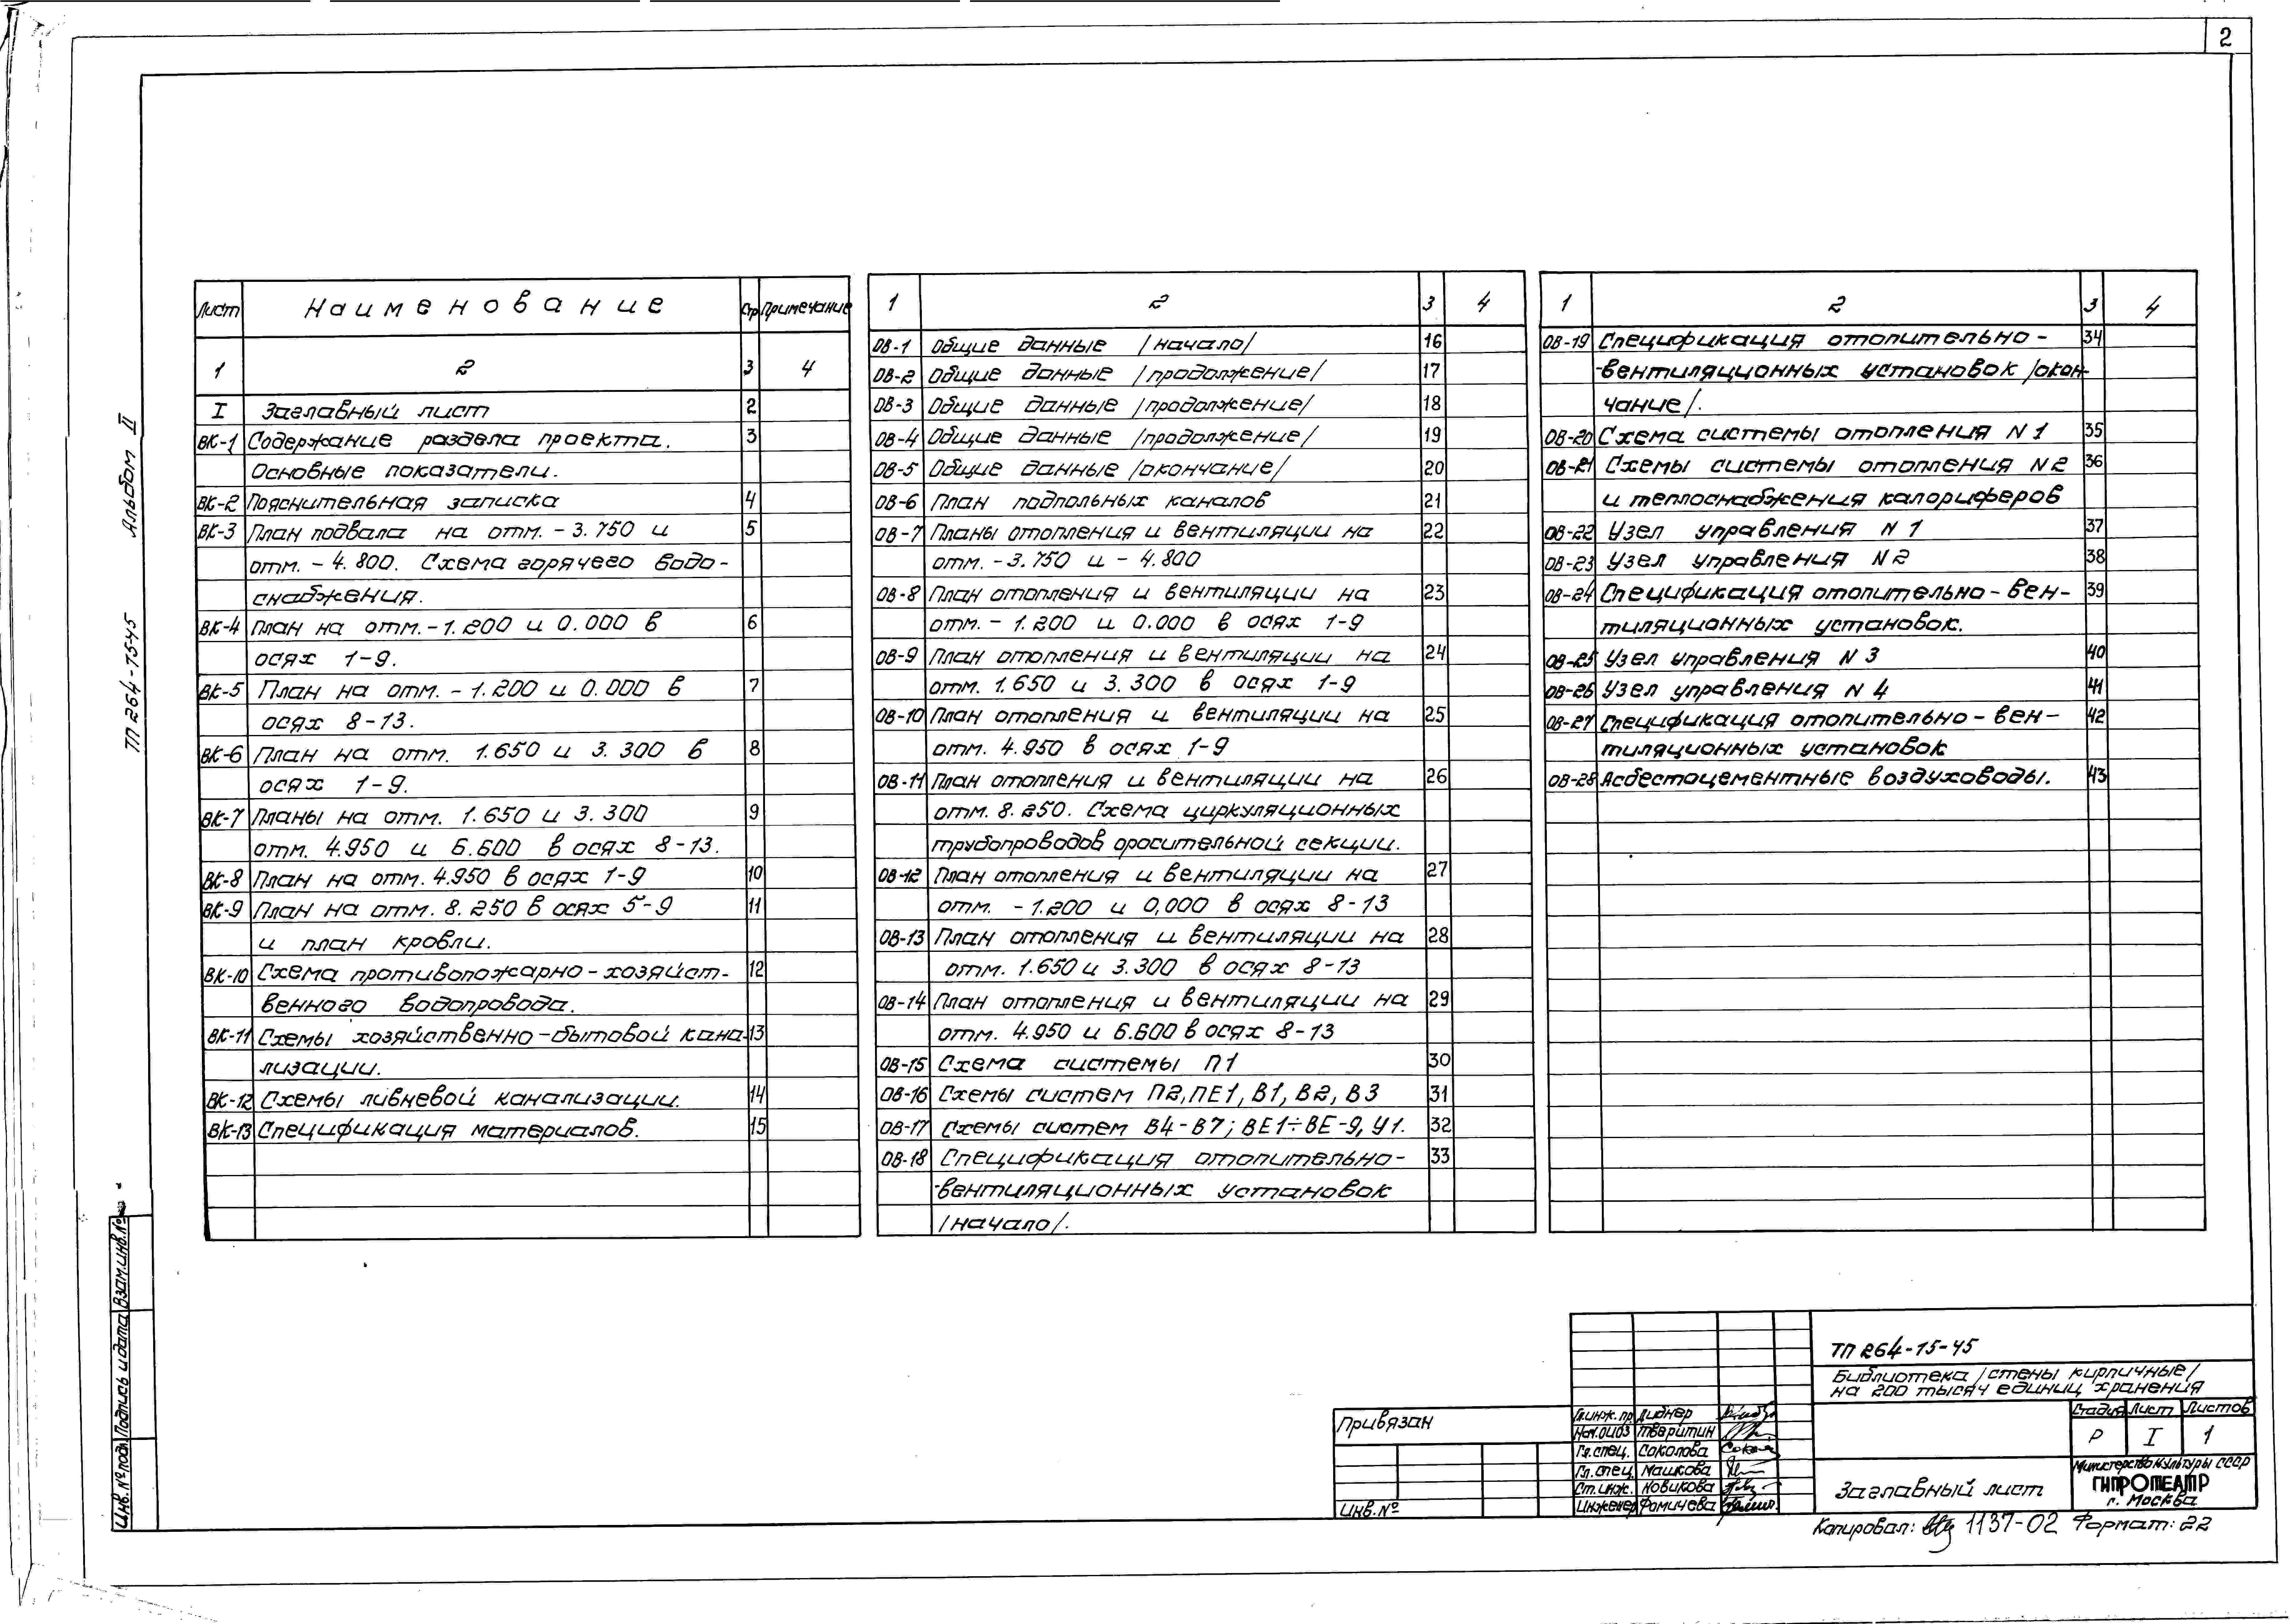 2
Альбом II
ТП 264-15-45
Лист Наименование Стр Примечание
1 2 3 4
I Заглавный лист 2
ВК-1 Содержание раздела проекта. 3
Основные показатели.
ВК-2 Пояснительная записка 4
ВК-3 План подвала на отм. -3.750 и 5
отм. -4.800. Схема горячего водо-
снабжения.
ВК-4 План на отм. -1.200 и 0.000 в 6
осях 1-9.
ВК-5 План на отм. -1.200 и 0.000 в 7
осях 8-13.
ВК-6 План на отм. 1.650 и 3.300 в 8
осях 1-9.
ВК-7 Планы на отм. 1.650 и 3.300 9
отм. 4.950 и 6.600 в осях 8-13.
ВК-8 План на отм. 4.950 в осях 1-9 10
ВК-9 План на отм. 8.250 в осях 5-9 11
и план кровли.
ВК-10 Схема противопожарно-хозяйст- 12
венного водопровода.
ВК-11 Схемы хозяйственно-бытовой кана- 13
лизации.
ВК-12 Схемы ливневой канализации. 14
ВК-13 Спецификация материалов. 15
1 2 3 4
ОВ-1 Общие данные /начало/ 16
ОВ-2 Общие данные /продолжение/ 17
ОВ-3 Общие данные /продолжение/ 18
ОВ-4 Общие данные /продолжение/ 19
ОВ-5 Общие данные /окончание/ 20
ОВ-6 План подпольных каналов 21
ОВ-7 Планы отопления и вентиляции на 22
отм. -3.750 и -4.800
ОВ-8 План отопления и вентиляции на 23
отм. -1.200 и 0.000 в осях 1-9
ОВ-9 План отопления и вентиляции на 24
отм. 1.650 и 3.300 в осях 1-9
ОВ-10 План отопления и вентиляции на 25
отм. 4.950 в осях 1-9
ОВ-11 План отопления и вентиляции на 26
отм. 8.250. Схема циркуляционных
трубопроводов оросительной секции.
ОВ-12 План отопления и вентиляции на 27
отм. -1.200 и 0,000 в осях 8-13
ОВ-13 План отопления и вентиляции на 28
отм. 1.650 и 3.300 в осях 8-13
ОВ-14 План отопления и вентиляции на 29
отм. 4.950 и 6.600 в осях 8-13
ОВ-15 Схема системы П1 30
ОВ-16 Схемы систем П2, ПЕ1, В1, В2, В3 31
ОВ-17 Схемы систем В4-В7; ВЕ1÷ВЕ-9, У1. 32
ОВ-18 Спецификация отопительно- 33
-вентиляционных установок
/начало/.
1 2 3 4
ОВ-19 Спецификация отопительно- 34
-вентиляционных установок /окон-
чание/.
ОВ-20 Схема системы отопления N1 35
ОВ-21 Схемы системы отопления N2 36
и теплоснабжения калориферов
ОВ-22 Узел управления N1 37
ОВ-23 Узел управления N2 38
ОВ-24 Спецификация отопительно-вен- 39
тиляционных установок.
ОВ-25 Узел управления N3 40
ОВ-26 Узел управления N4 41
ОВ-27 Спецификация отопительно-вен- 42
тиляционных установок
ОВ-28 Асбестоцементные воздуховоды. 43
Инв.№подл. Подпись и дата Взам.инв.№
ТП 264-15-45
Библиотека /стены кирпичные/
на 200 тысяч единиц хранения
Привязан
Инв.№
Гл.инж.пр. Лиднер
Нач.ОИОЗ Тваритин
Гл.спец. Соколова
Гл.спец. Машкова
Ст.инж. Новикова
Инженер Фомичева
Стадия Лист Листов
Р I 1
Заглавный лист
Министерство культуры СССР
ГИПРОТЕАТР
г. Москва
Копировал: 1137-02 Формат: 22